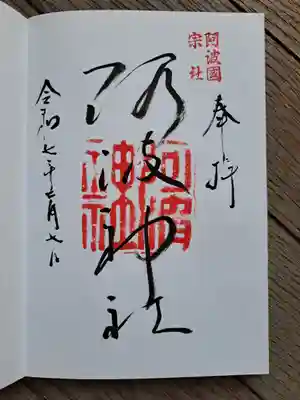 阿波國
宗社
奉拝
阿波神社
阿波
神社
令和七年 月七日